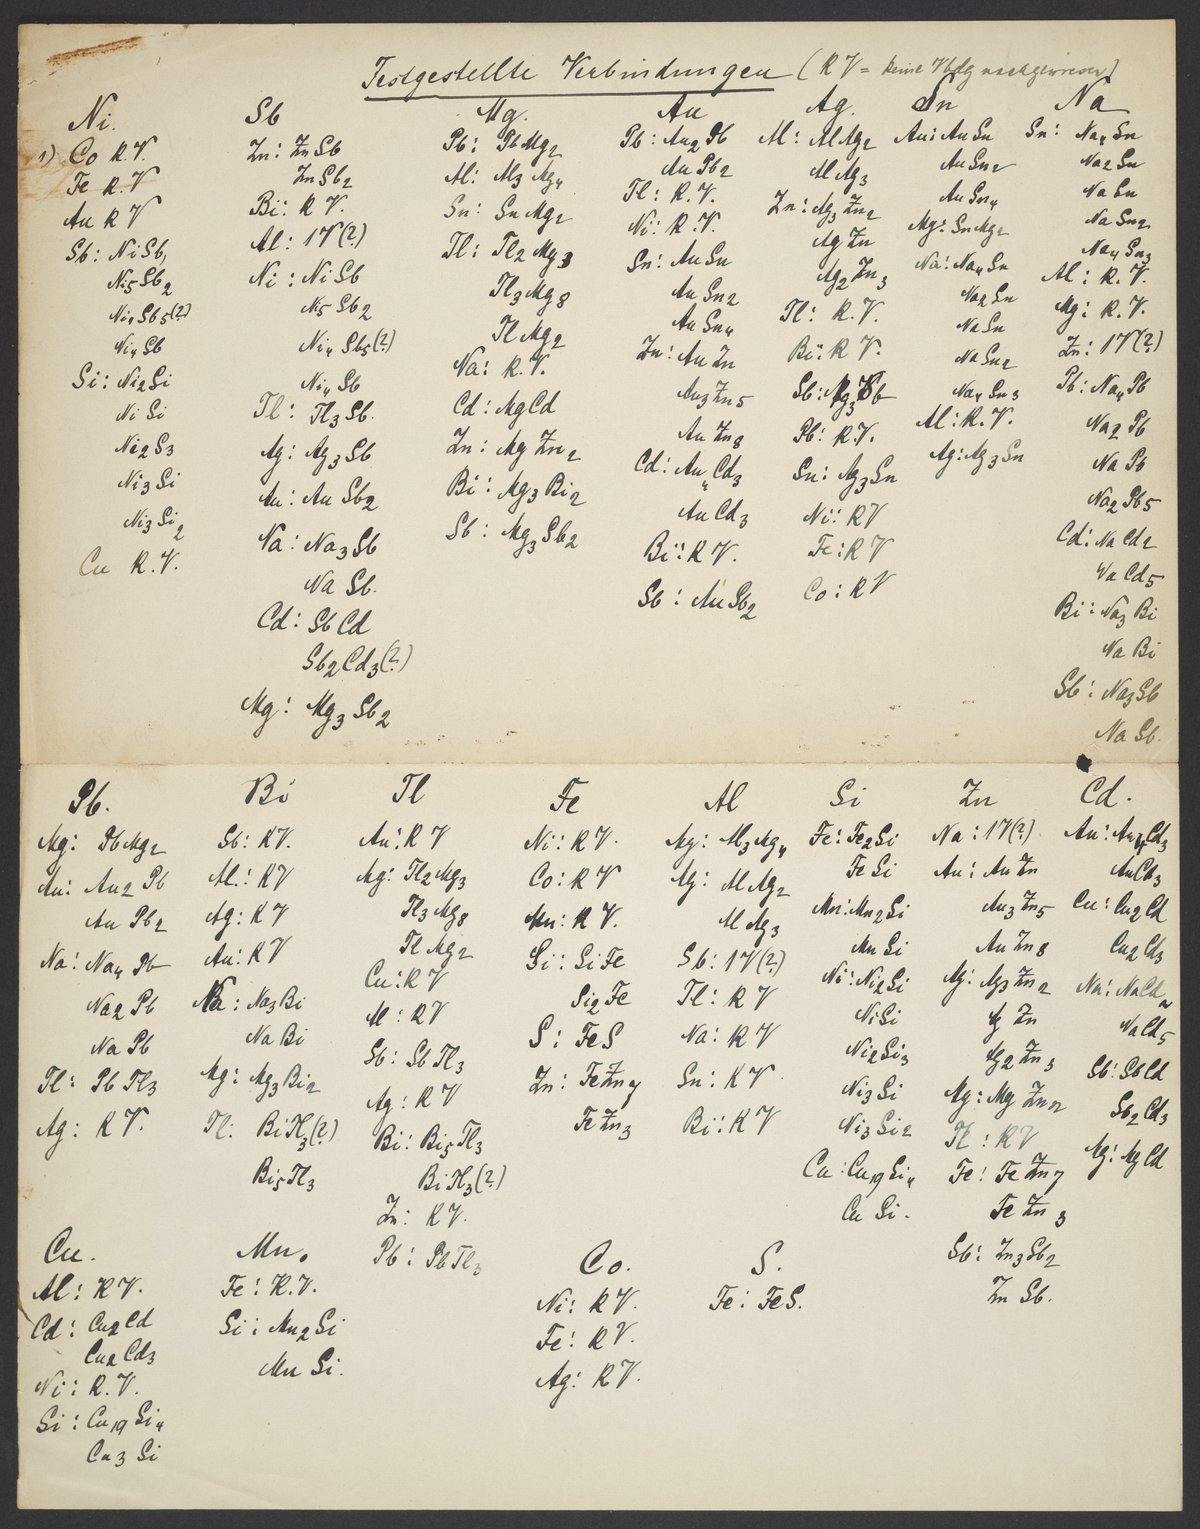 Festgestellte Verbindungen (KV = keine Vbdg nachgewiesen)
Ni.
1) Co K.V.
Fe K.V
Au K V
Sb: NiSb,
Ni5Sb2
Ni4Sb5(?)
Ni4Sb
Si: Ni2Si
NiSi
Ni2S3
Ni3Si
Ni3Si2
Cu K.V.
Sb
Zn: ZnSb
ZnSb2
Bi: K V.
Al: 1V(?)
Ni: NiSb
Ni5Sb2
Ni4Sb5(?)
Ni4Sb
Tl: Tl3Sb.
Ag: Ag3Sb
Au: AuSb2
Na: Na3Sb
NaSb.
Cd: SbCd
Sb2Cd3(?)
Mg: Mg3Sb2
Mg.
Pb: PbMg2
Al: Al3Mg4
Sn: SnMg2
Tl: Tl2Mg3
Tl3Mg8
TlMg2
Na: K.V.
Cd: MgCd
Zn: MgZn2
Bi: Mg3Bi2
Sb: Mg3Sb2
Au
Pb: Au2Pb
AuPb2
Tl: K.V.
Ni: K.V.
Sn: AuSn
AuSn2
AuSn4
Zn: AuZn
Au3Zn5
AuZn8
Cd: Au4Cd3
AuCd3
Bi: K V.
Sb: AuSb2
Ag.
Al: AlAg2
AlAg3
Zn: Ag3Zn2
AgZn
Ag2Zn3
Tl: K.V.
Bi: K V.
Sb: Ag3Sb
Pb: K.V.
Sn: Ag3Sn
Ni: KV
Fe: KV
Co: KV
Sn
Au: AuSn
AuSn2
AuSn4
Mg: SnMg2
Na: Na4Sn
Na2Sn
NaSn
NaSn2
Na4Sn3
Al: K.V.
Ag: Ag3Sn
Na
Sn: Na4Sn
Na2Sn
NaSn
NaSn2
Na4Sn3
Al: K.V.
Mg: K.V.
Zn: 1V(?)
Pb: Na4Pb
Na2Pb
NaPb
Na2Pb5
Cd: NaCd2
NaCd5
Bi: Na3Bi
NaBi
Sb: Na3Sb
NaSb.
Pb.
Mg: PbMg2
Au: Au2Pb
AuPb2
Na: Na4Pb
Na2Pb
NaPb
Tl: PbTl3
Ag: K V.
Bi
Sb: KV.
Al.: KV
Ag: KV
Au: KV
Na: Na3Bi
NaBi
Mg: Mg3Bi2
Tl: BiTl3(?)
Bi5Tl3
Tl
Au: K V
Mg: Tl2Mg3
Tl3Mg8
TlMg2
Cu: K V
Al: KV
Sb: SbTl3
Ag: K V
Bi: Bi5Tl3
BiTl3(?)
Zn: KV.
Pb: PbTl3
Fe
Ni: K V.
Co: K V
Mn: K V.
Si: SiFe
Si2Fe
S: FeS
Zn: FeZn7
FeZn3
Al
Mg: Al3Mg4
Ag: AlAg2
AlAg3
Sb: 1V(?)
Tl: K V
Na: K V
Sn: K V
Bi: K V
Si
Fe: Fe2Si
FeSi
Mn: Mn2Si
MnSi
Ni: Ni2Si
NiSi
Ni2Si3
Ni3Si
Ni3Si2
Cu: Cu19Si4
CuSi.
Zn
Na: 1V(?)
Au: AuZn
Au3Zn5
AuZn8
Ag: Ag3Zn2
AgZn
Ag2Zn3
Mg: MgZn2
Tl: KV
Fe: FeZn7
FeZn3
Sb: Zn3Sb2
ZnSb.
Cd.
Au: Au4Cd3
AuCd3
Cu: Cu2Cd
Cu2Cd3
Na: NaCd2
NaCd5
Sb: SbCd
Sb2Cd3
Mg: MgCd
Cu.
Al: K V.
Cd: Cu2Cd
Cu2Cd3
Ni: K.V.
Si: Cu19Si4
Cu3Si
Mn.
Fe: K.V.
Si: Mn2Si
MnSi.
Co.
Ni: KV.
Fe: K V.
Ag: KV.
S.
Fe: FeS.